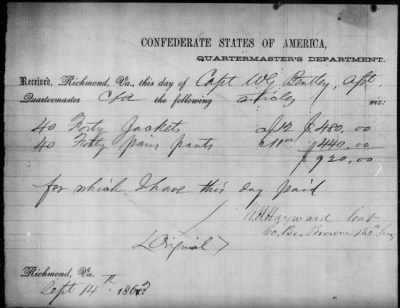 CONFEDERATE STATES OF AMERICA,
QUARTERMASTER'S DEPARTMENT.
Received, Richmond, Va., this day of Capt W G Bentley, Asst.
Quartermaster CSA the following articles viz:
40 Forty Jackets @ 12 $480,00
40 Forty pairs pants @ 11.00 $440.00
$920.00
for which I have this day paid
Hayward Capt
(Original)
Richmond, Va.
Sept 14th 1863